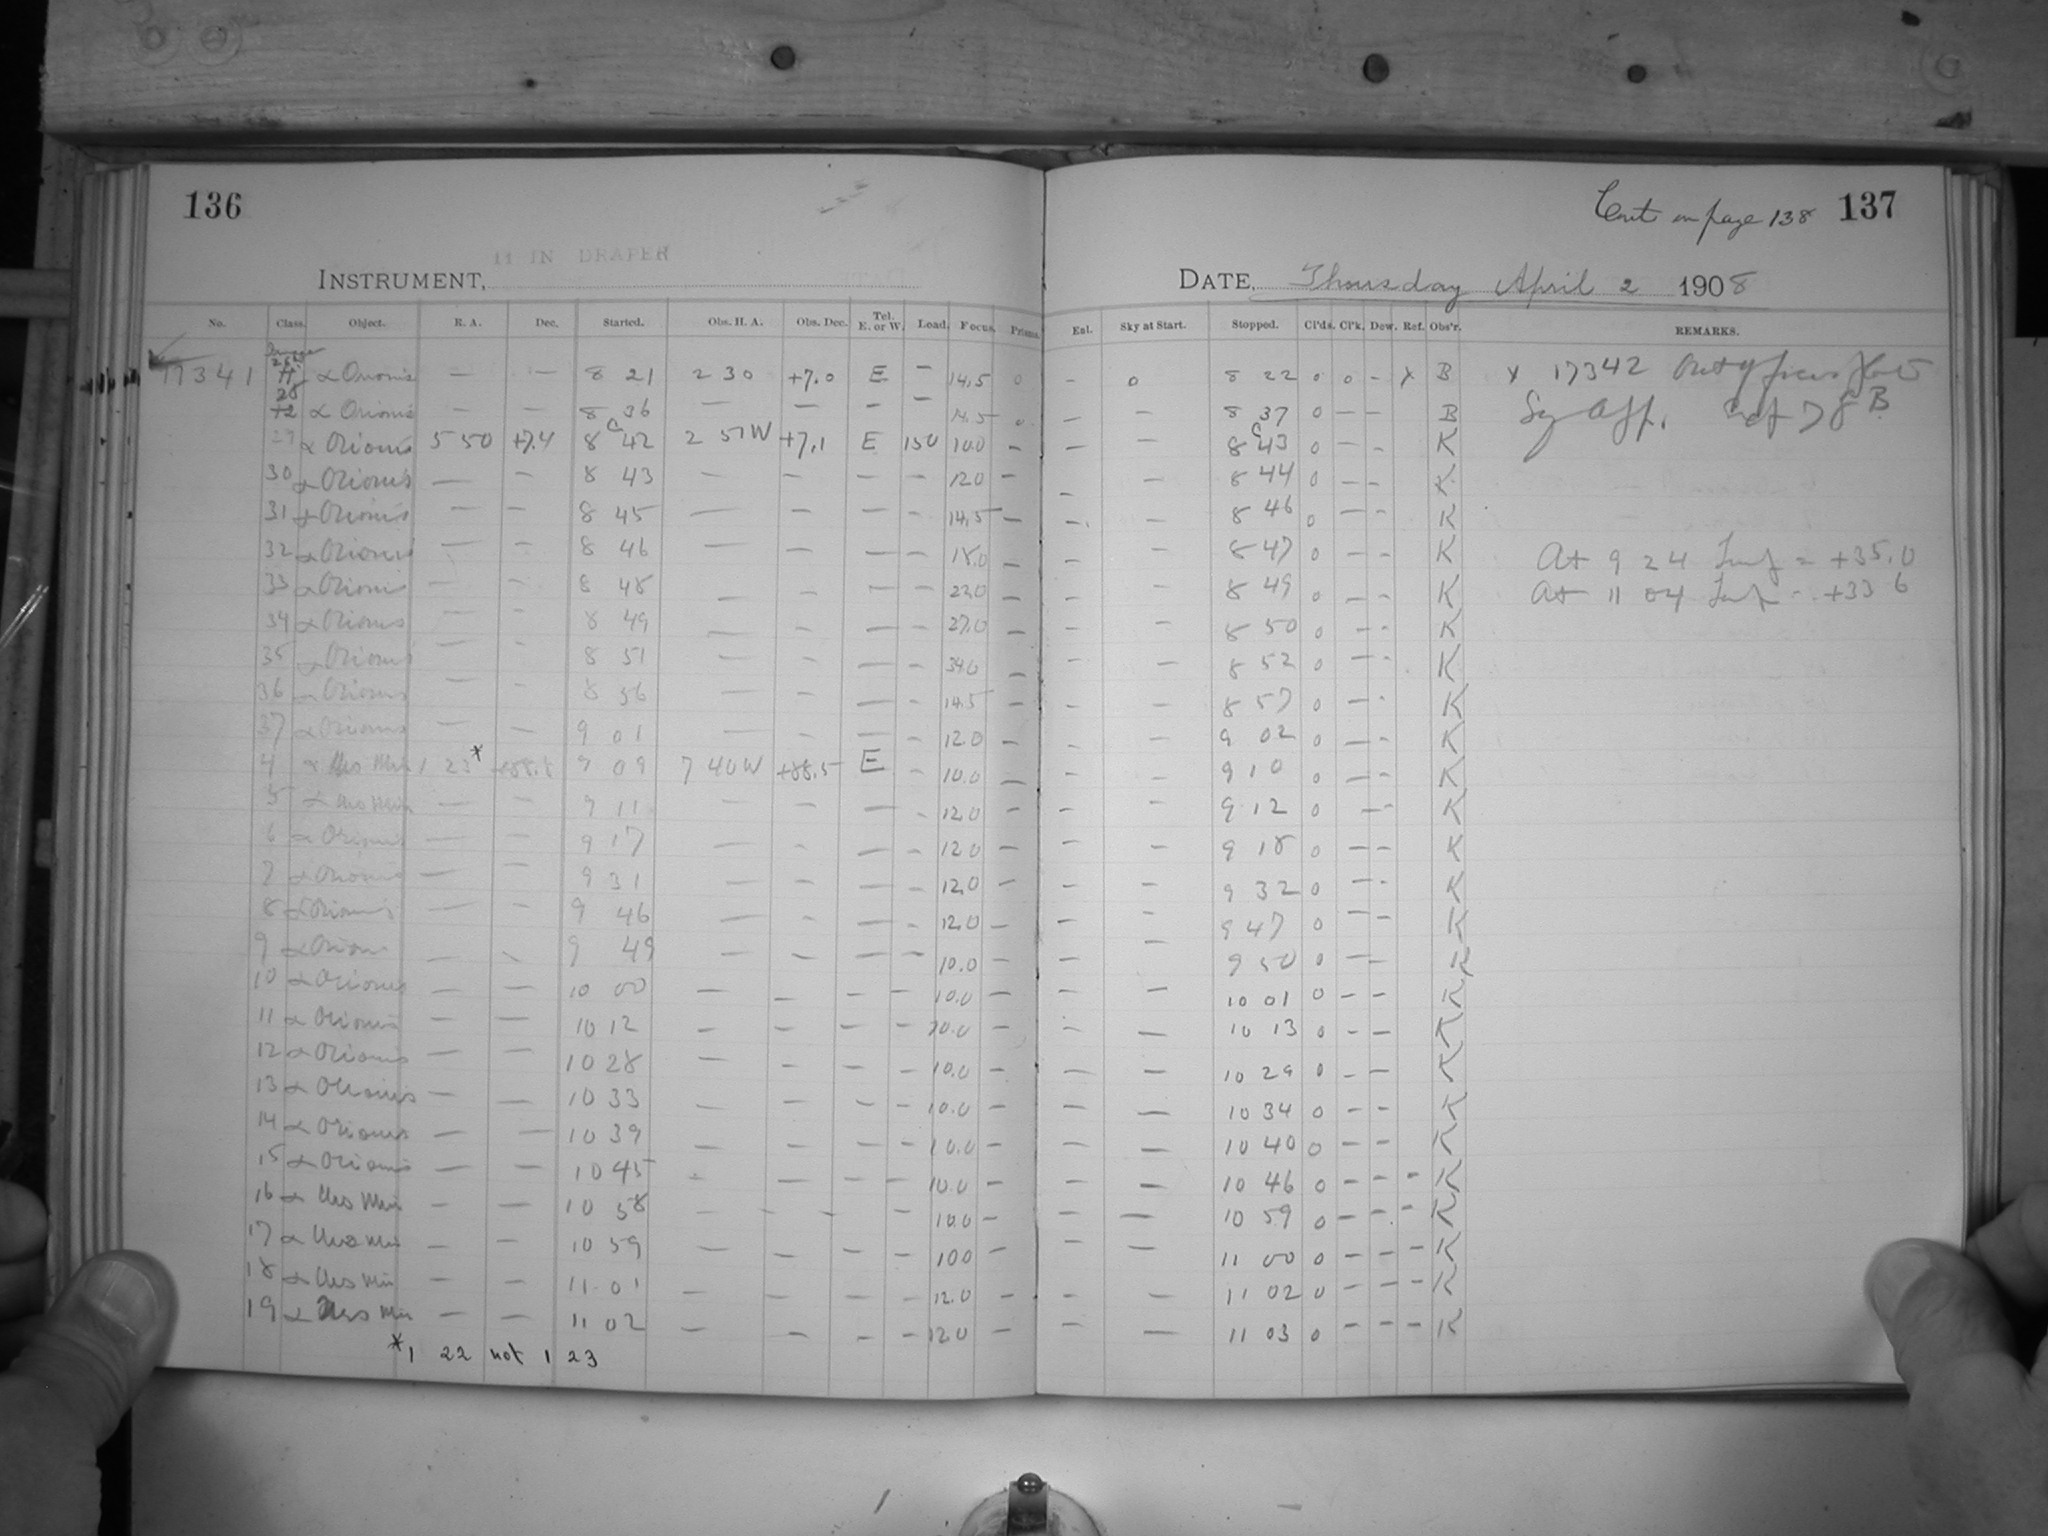 136
11 IN DRAPER
INSTRUMENT,
No. Class. Object. R. A. Dec. Started. Obs. H. A. Obs. Dec. Tel. E. or W. Load. Focus. Prisms.
17341 α Orionis — — 8 21 2 30 +7.0 E — 14.5 0
α Orionis — — 8 36 — — — — 14.5 0
29 α Orionis 5 50 +7.4 8 42 2 51 W +7.1 E 150 10.0 —
30 α Orionis — — 8 43 — — — — 12.0 —
31 α Orionis — — 8 45 — — — — 14.5 —
32 α Orionis — — 8 46 — — — — 18.0 —
33 α Orionis — — 8 48 — — — — 22.0 —
34 α Orionis — — 8 49 — — — — 27.0 —
35 α Orionis — — 8 51 — — — — 34.0 —
36 α Orionis — — 8 56 — — — — 14.5 —
37 α Orionis — — 9 01 — — — — 12.0 —
4 α Urs Min 1 23* +88.8 9 09 7 40 W +88.5 E — 10.0 —
5 α Urs Min — — 9 11 — — — — 12.0 —
6 α Orionis — — 9 17 — — — — 12.0 —
7 α Orionis — — 9 31 — — — — 12.0 —
8 α Orionis — — 9 46 — — — — 12.0 —
9 α Orion — — 9 49 — — — — 10.0 —
10 α Orionis — — 10 00 — — — — 10.0 —
11 α Orionis — — 10 12 — — — — 10.0 —
12 α Orionis — — 10 28 — — — — 10.0 —
13 α Orionis — — 10 33 — — — — 10.0 —
14 α Orionis — — 10 39 — — — — 10.0 —
15 α Orionis — — 10 45 — — — — 10.0 —
16 α Urs Min — — 10 58 — — — — 10.0 —
17 α Urs Min — — 10 59 — — — — 10.0 —
18 α Urs Min — — 11 01 — — — — 12.0 —
19 α Urs Min — — 11 02 — — — — 12.0 —
*1 22 not 1 23
Cont on page 138 137
DATE, Thursday April 2 1908
Enl. Sky at Start. Stopped. Cl'ds. Cl'k. Dew. Ref. Obs'r. REMARKS.
— 0 8 22 0 0 — x B x 17342 Out of focus
— — 8 37 0 — — B
— — 8 43 0 — — K
— — 8 44 0 — — K
— — 8 46 0 — — K
— — 8 47 0 — — K At 9 24 = +35.0
— — 8 49 0 — — K At 11 04 +33 6
— — 8 50 0 — — K
— — 8 52 0 — — K
— — 8 57 0 — — K
— — 9 02 0 — — K
— — 9 10 0 — — K
— — 9 12 0 — — K
— — 9 18 0 — — K
— — 9 32 0 — — K
— — 9 47 0 — — K
— — 9 50 0 — — K
— — 10 01 0 — — K
— — 10 13 0 — — K
— — 10 29 0 — — K
— — 10 34 0 — — K
— — 10 40 0 — — K
— — 10 46 0 — — — K
— — 10 59 0 — — — K
— — 11 00 0 — — — K
— — 11 02 0 — — — K
— — 11 03 0 — — — K